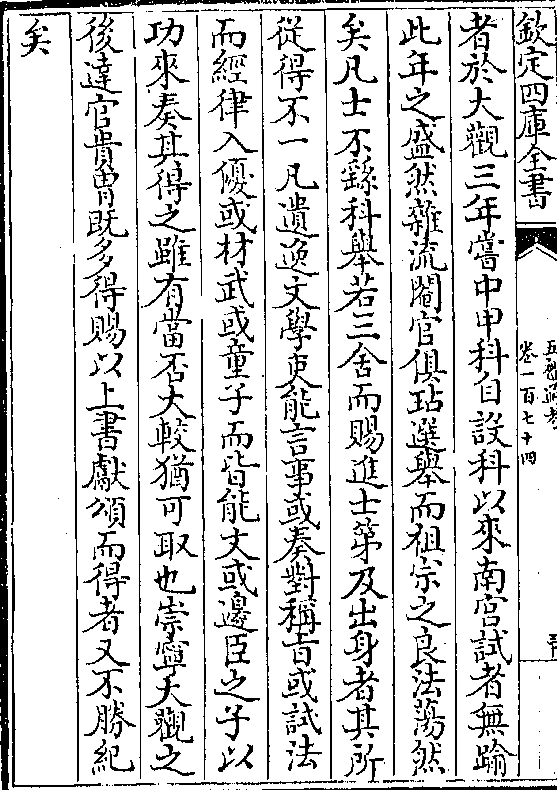 欽定四庫全書
五禮通考
卷一百七十四
者於大觀三年嘗中甲科自設科以來南宮試者無踰
此年之盛然雜流閹官俱玷選舉而祖宗之良法蕩然
矣凡士不繇科舉若三舍而賜進士第及出身者其所
從得不一凡遺逸文學吏能言事或奏對稱旨或試法
而經律入優或材武或童子而皆能文或邊臣之子以
功來奏其得之雖有當否大較猶可取也崇寧大觀之
後達官貴胄既多得賜以上書獻頌而得者又不勝紀
矣